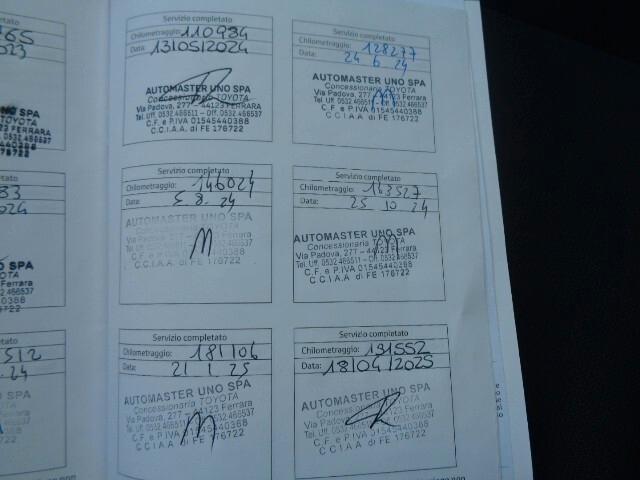 Servizio completato
Chilometraggio: 110984
Data: 13/05/2024
AUTOMASTER UNO SPA
Concessionaria TOYOTA
Via Padova, 277 - 44123 FERRARA
Tel. Uff. 0532.466511 - Off. 0532.466537
C.F. e P.IVA 01545440388
C.C.I.A.A. di FE 176722
Servizio completato
Chilometraggio: 128277
Data: 24 6 24
AUTOMASTER UNO SPA
Concessionaria TOYOTA
Via Padova, 277 - 44123 Ferrara
Tel. Uff. 0532 466511 - Off. 0532 466537
C.F. e P.IVA 01545440388
C.C.I.A.A. di FE 176722
Servizio completato
Chilometraggio: 146024
Data: 5. 8. 24
AUTOMASTER UNO SPA
Concessionaria TOYOTA
Via Padova, 277 - 44123 Ferrara
Tel. Uff. 0532 466511 - Off. 0532 466537
C.F. e P.IVA 01545440388
C.C.I.A.A. di FE 176722
Servizio completato
Chilometraggio: 163527
Data: 25 10 24
AUTOMASTER UNO SPA
Concessionaria TOYOTA
Via Padova, 277 - 44123 Ferrara
Tel. Uff. 0532 466511 - Off. 0532 466537
C.F. e P.IVA 01545440388
C.C.I.A.A. di FE 176722
Servizio completato
Chilometraggio: 181106
Data: 21 1 25
AUTOMASTER UNO SPA
Concessionaria TOYOTA
Via Padova, 277 - 44123 Ferrara
Tel. Uff. 0532 466511 - Off. 0532 466537
C.F. e P.IVA 01545440388
C.C.I.A.A. di FE 176722
Servizio completato
Chilometraggio: 191552
Data: 18/04/2025
AUTOMASTER UNO SPA
Concessionaria TOYOTA
Via Padova, 277 - 44123 Ferrara
Tel. Uff. 0532 466511 - Off. 0532 466537
C.F. e P.IVA 01545440388
C.C.I.A.A. di FE 176722